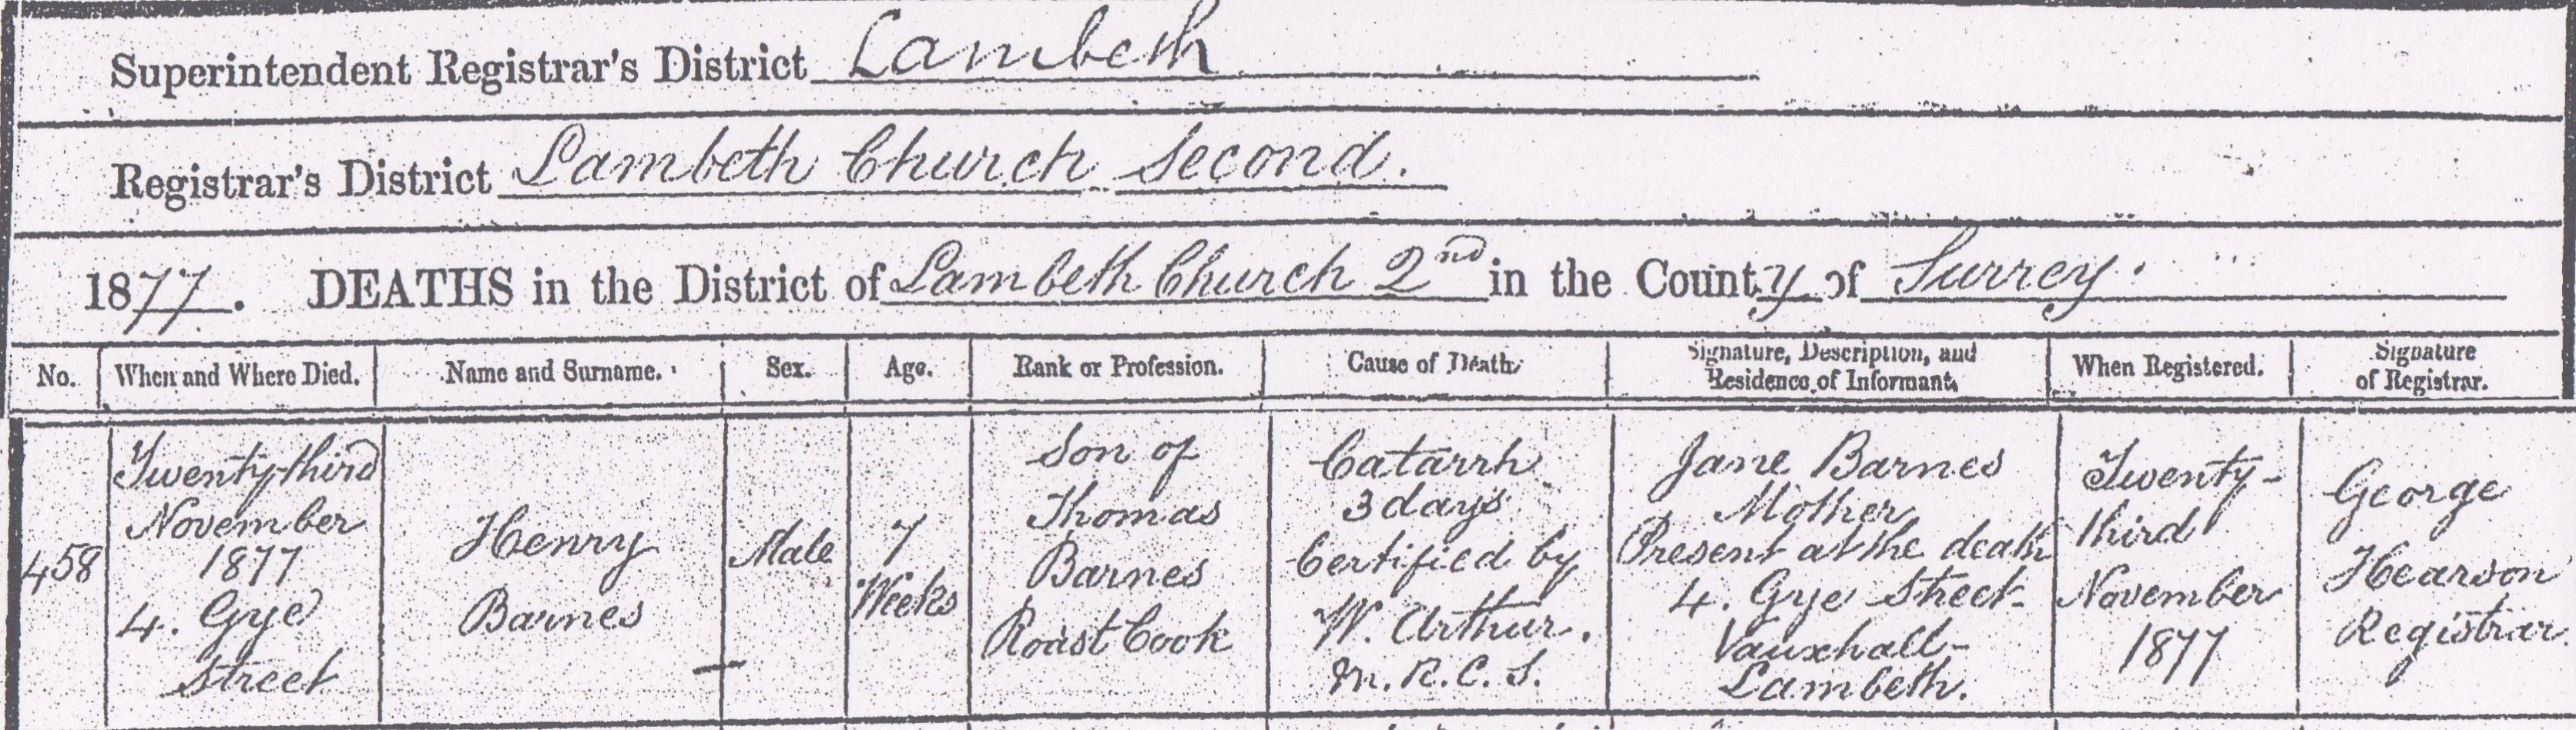 Superintendent Registrar's District Lambeth
Registrar's District Lambeth Church Second.
1877. DEATHS in the District of Lambeth Church 2nd in the County of Surrey.
No. When and Where Died. Name and Surname. Sex. Age. Rank or Profession. Cause of Death Signature, Description, and Residence of Informant. When Registered. Signature of Registrar.
458
Twenty third
November
1877
4. Gye
Street
Henry
Barnes
Male
7
Weeks
Son of
Thomas
Barnes
Roast Cook
Catarrh
3 days
Certified by
W. Arthur.
M.R.C.S.
Jane Barnes
Mother
Present at the death
4. Gye Street
Vauxhall
Lambeth.
Twenty-
third
November
1877
George
Hearson
Registrar